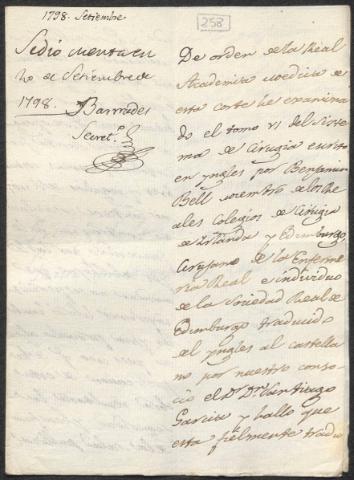 1798. Setiembre
258
Se dió cuenta en
20 de Setiembre de
1798. Barnades
Secret.º
De orden de la Real
Academia Medica de
esta corte he examina
do el tomo VI del Siste
ma de Cirugia escrito
en yngles por Benjamin
Bell miembro de los Re
ales Colegios de Cirugia
de Irlanda y Edimburgo,
Cirujano de la Enferme
ria Real e individuo
de la Sociedad Real de
Edimburgo traducido
del yngles al castella
no por nuestro conso
cio el D.r D.n Santiago
Garcia y hallo que
esta fielmente tradu